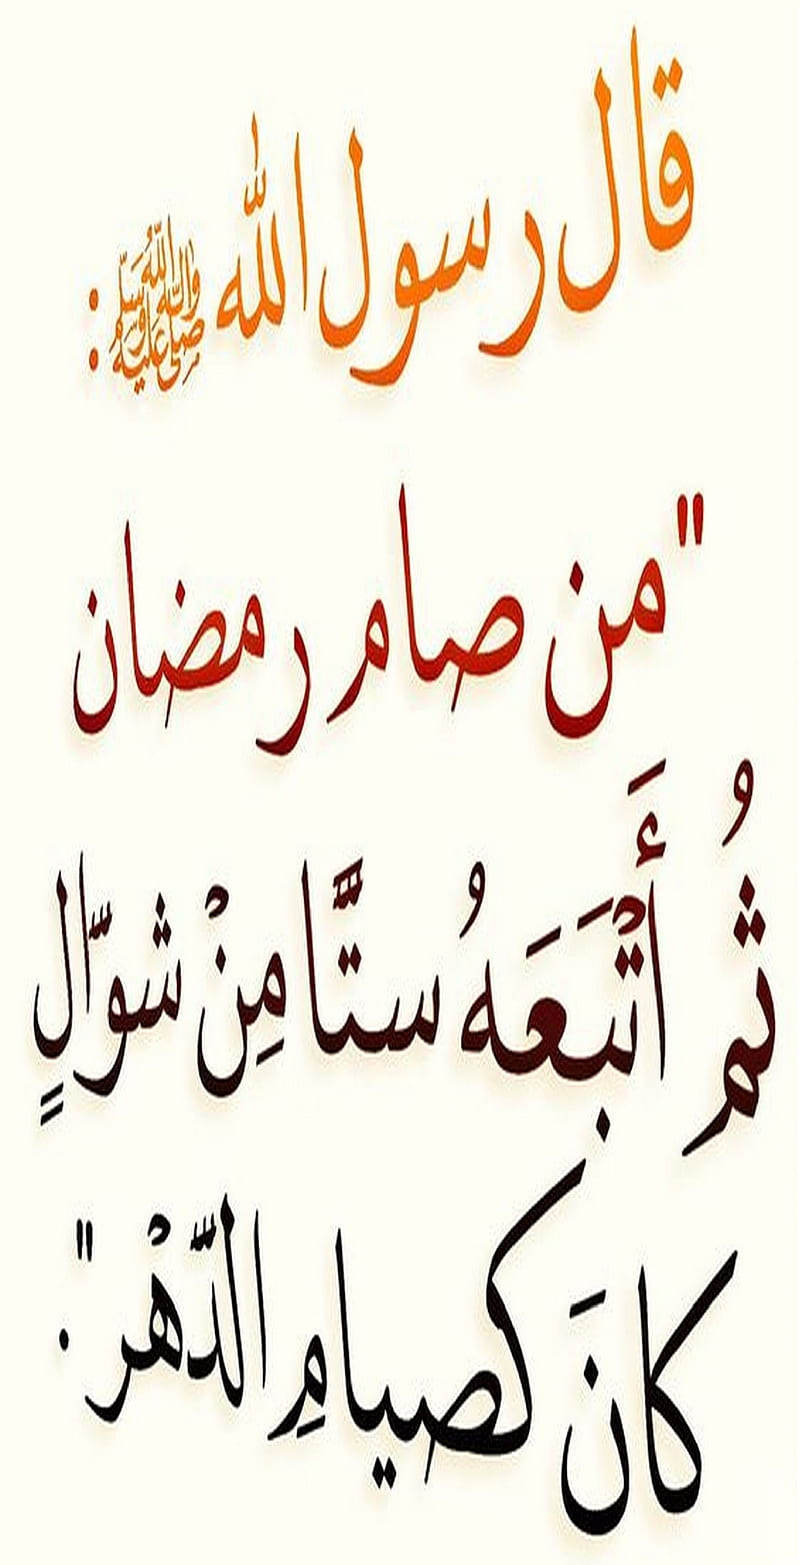 قال رسول الله صلى الله عليه وآله وسلم :
"من صام رمضان
ثُم أَتْبَعَهُ ستًّا مِنْ شوَّالٍ
كانَ كصيامِ الدَّهْر".